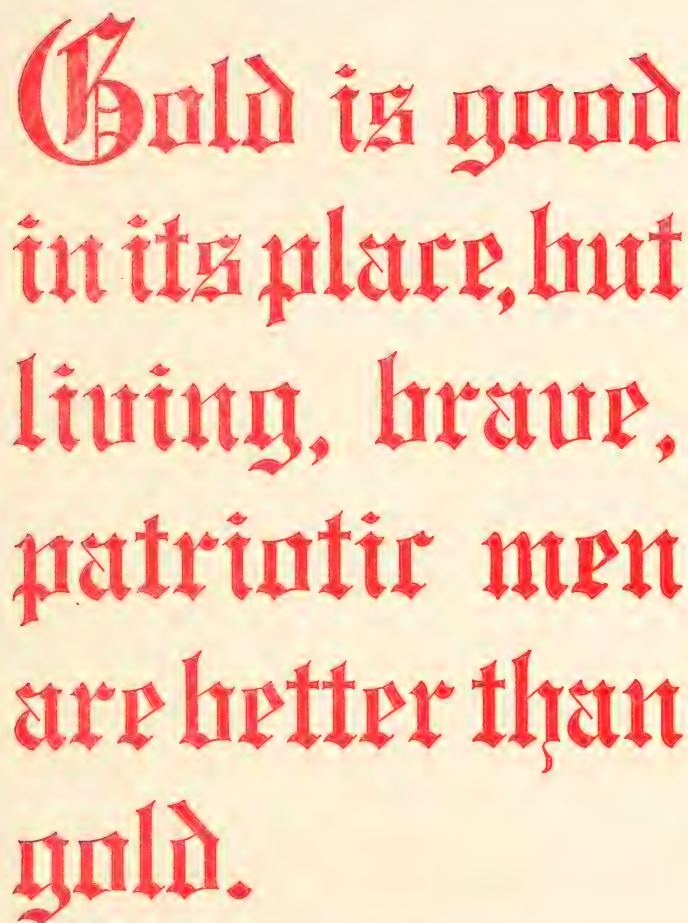 Gold is good
in its place, but
living, brave,
patriotic men
are better than
gold.